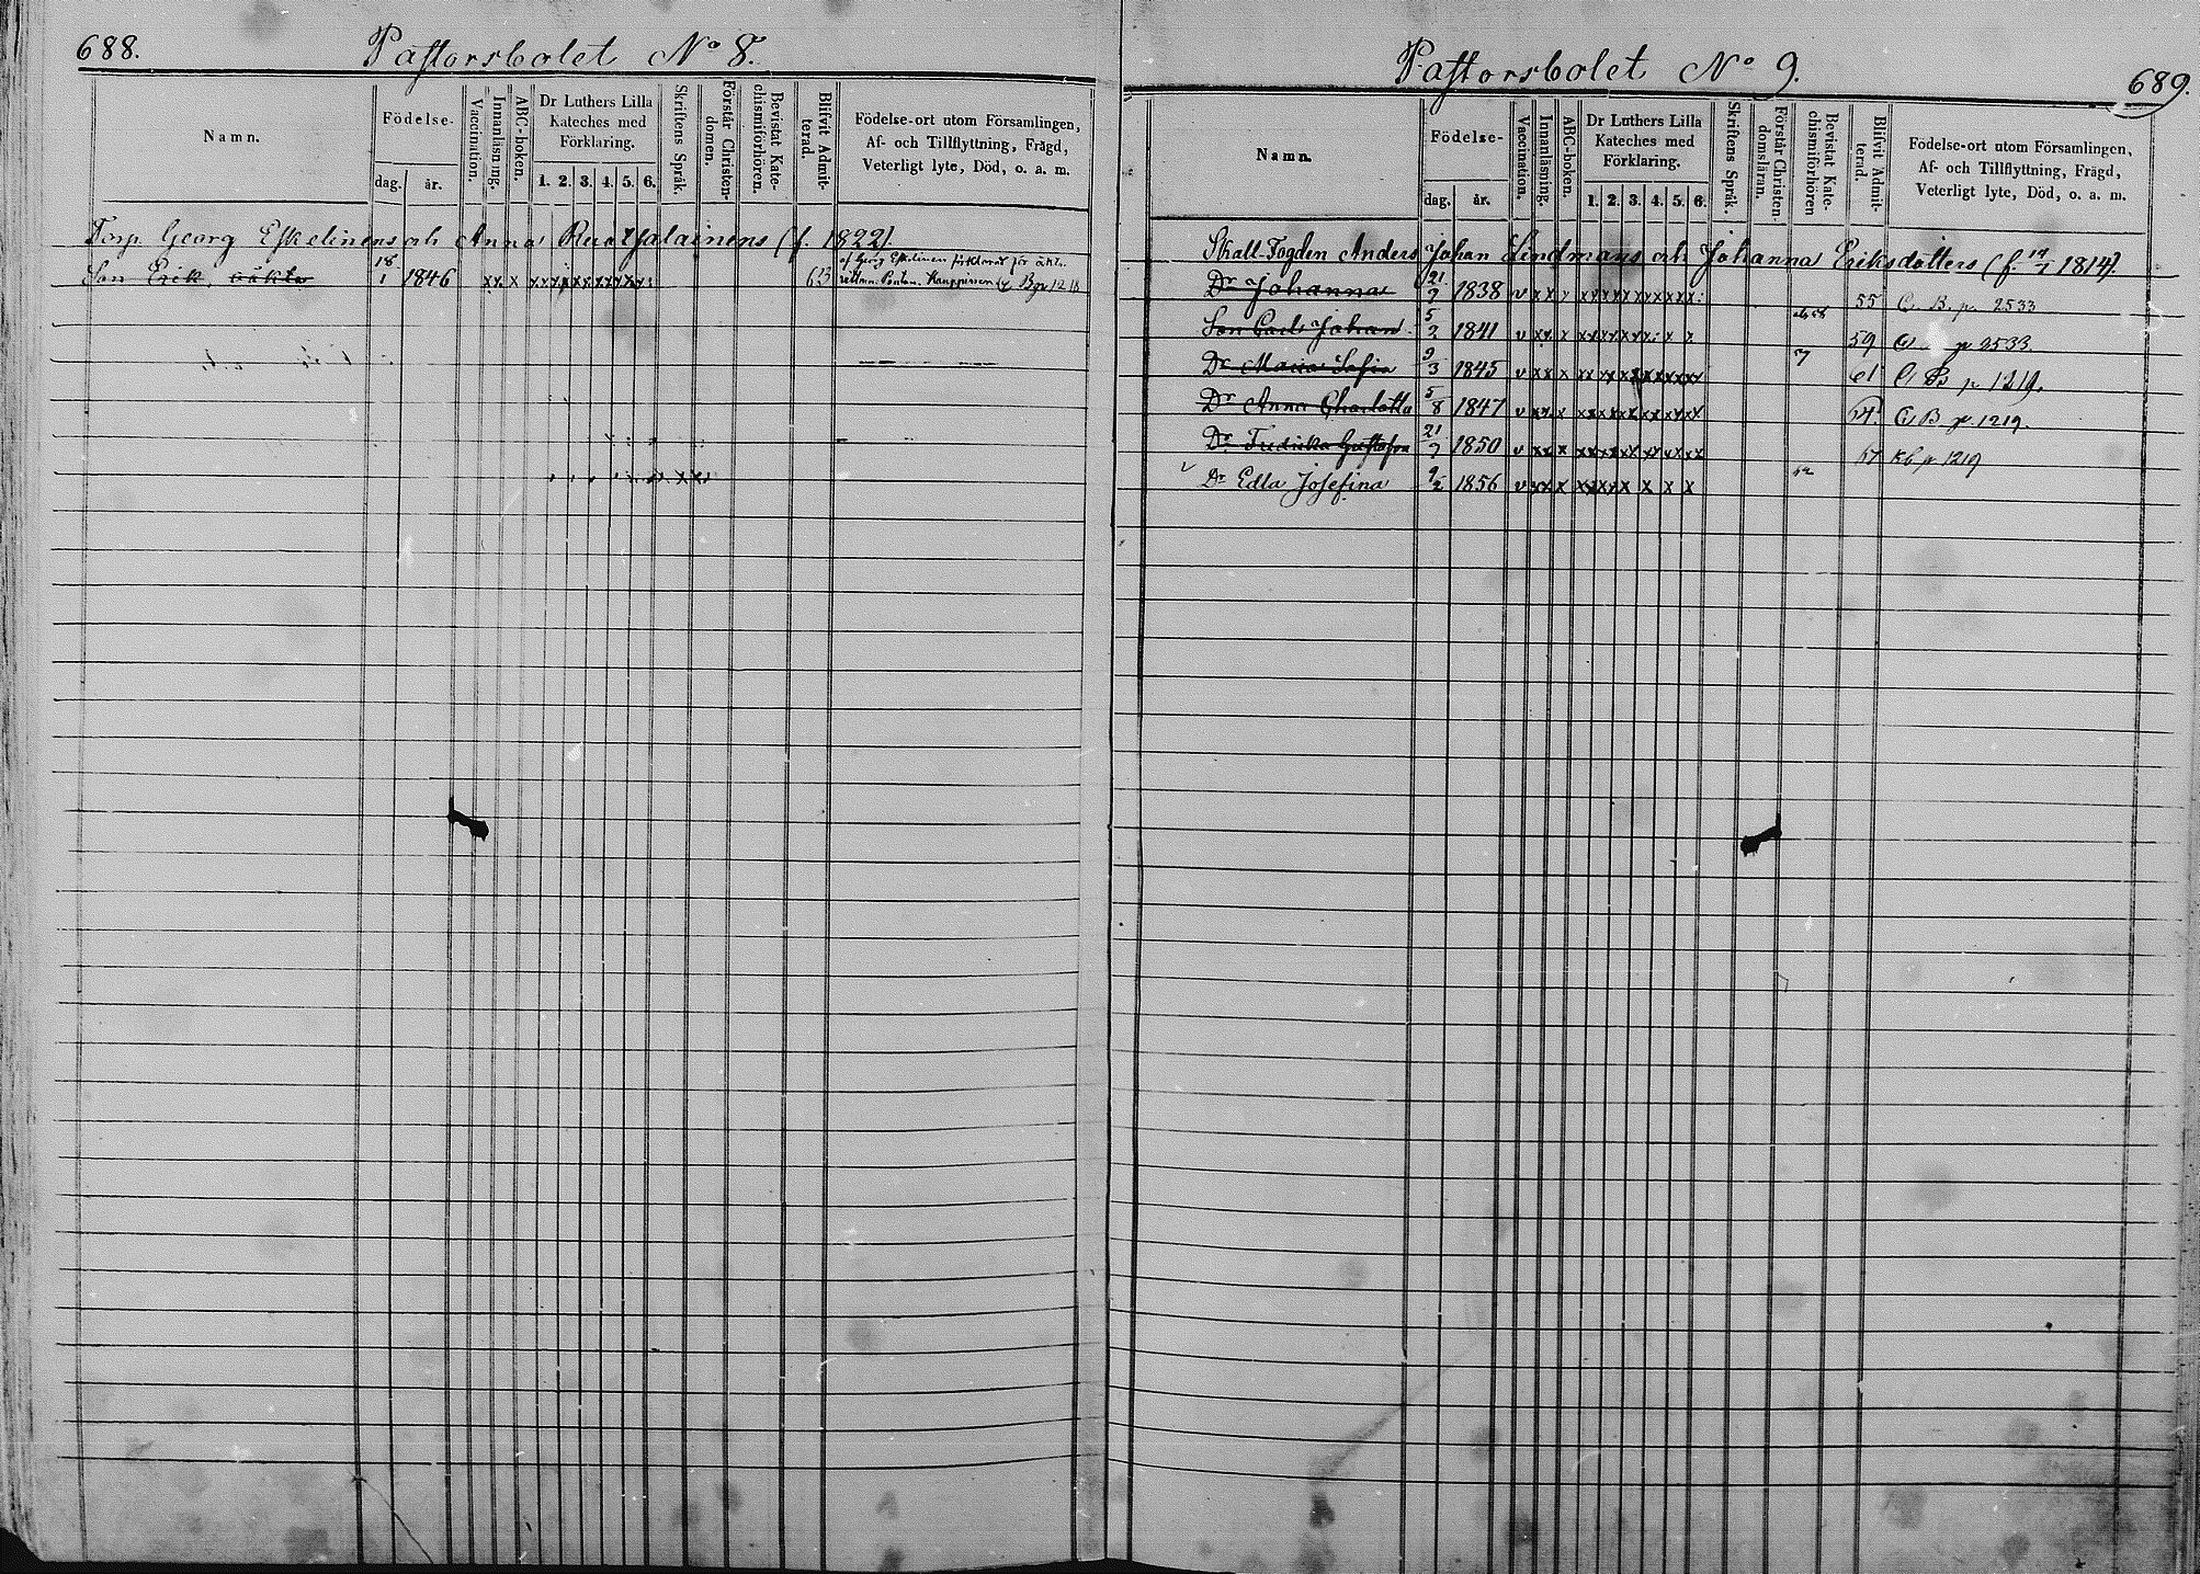 688.
Pastorsbolet No 8.
Namn.
Födelse-
dag. år.
Vaccination.
Innanläsning.
ABC-boken.
Dr Luthers Lilla
Kateches med
Förklaring.
1. 2. 3. 4. 5. 6.
Skriftens Språk.
Förstår Christen-
domen.
Bevistat Kate-
chismiförhören.
Blifvit Admit-
terad.
Födelse-ort utom Församlingen,
Af- och Tillflyttning, Frägd,
Veterligt lyte, Död, o. a. m.
Torp. Georg Eskelinens och Anna Ruotsalainens (f. 1822).
Son Erik, oäkta 18/1 1846 63
af Georg Eskelinen förklarad för äkta.
Pastorsbolet No 9.
689.
Namn.
Födelse-
dag. år.
Vaccination.
Innanläsning.
ABC-boken.
Dr Luthers Lilla
Kateches med
Förklaring.
1. 2. 3. 4. 5. 6.
Skriftens Språk.
Förstår Christen-
domsläran.
Bevistat Kate-
chismiförhören
Blifvit Admit-
terad.
Födelse-ort utom Församlingen,
Af- och Tillflyttning, Frägd,
Veterligt lyte, Död, o. a. m.
Skall-Fogden Anders Johan Lindmans och Johanna Eriksdotters (f. 1814).
Dr Johanna 1838 v 55 C. B. p. 2533
Son Carl Johan 5/2 1841 v 59 p 2533.
Dr Maria Sofia 9/3 1845 v 61 C B p 1219.
Dr Anna Charlotta 5/8 1847 v C B p. 1219.
Dr Fredrika Gustafva 1850 v p 1219
Dr Edla Josefina 9/2 1856 v